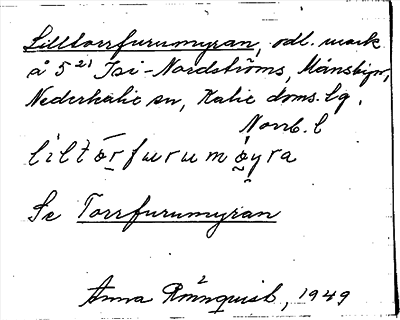 Lilltorrfurumyran, odl. mark
å 5²¹ Isi-Nordströms, Månsbyn,
Nederkalix sn, Kalix doms. lg.
Norrb. l
liltørfurumøyra
Se Torrfurumyran
Anna Rönnquist, 1949